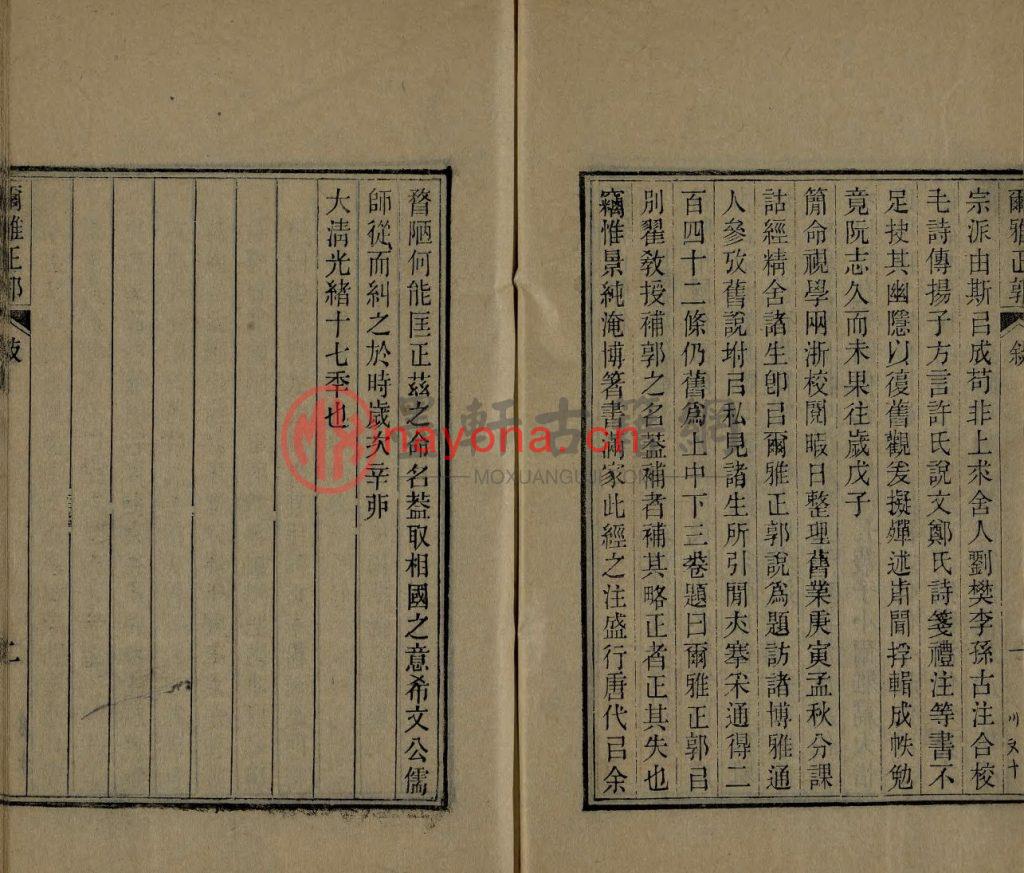 爾雅正郭
敘
一
宗派由斯㠯成苟非上求舍人劉樊李孫古注合校
毛詩傳揚子方言許氏說文鄭氏詩箋禮注等書不
足抉其幽隱以復舊觀爰擬嬋述肅聞捊輯成帙勉
竟阮志久而未果往歲戊子
簡命視學兩浙校閱暇日整理舊業庚寅孟秋分課
詁經精舍諸生卽㠯爾雅正郭說爲題訪諸博雅通
人參攷舊說坿㠯私見諸生所引閒夾塞釆通得二
百四十二條仍舊爲上中下三卷題曰爾雅正郭㠯
別翟敎授補郭之名葢補者補其略正者正其失也
竊惟景純淹博箸書滿家此經之注盛行唐代㠯余
瞀陋何能匡正茲之命名葢取相國之意希文公儒
師從而糾之於時歲次辛丣
大清光緒十七季也
爾雅正郭
二
nayona.cn
MOXUANGUJI.COM